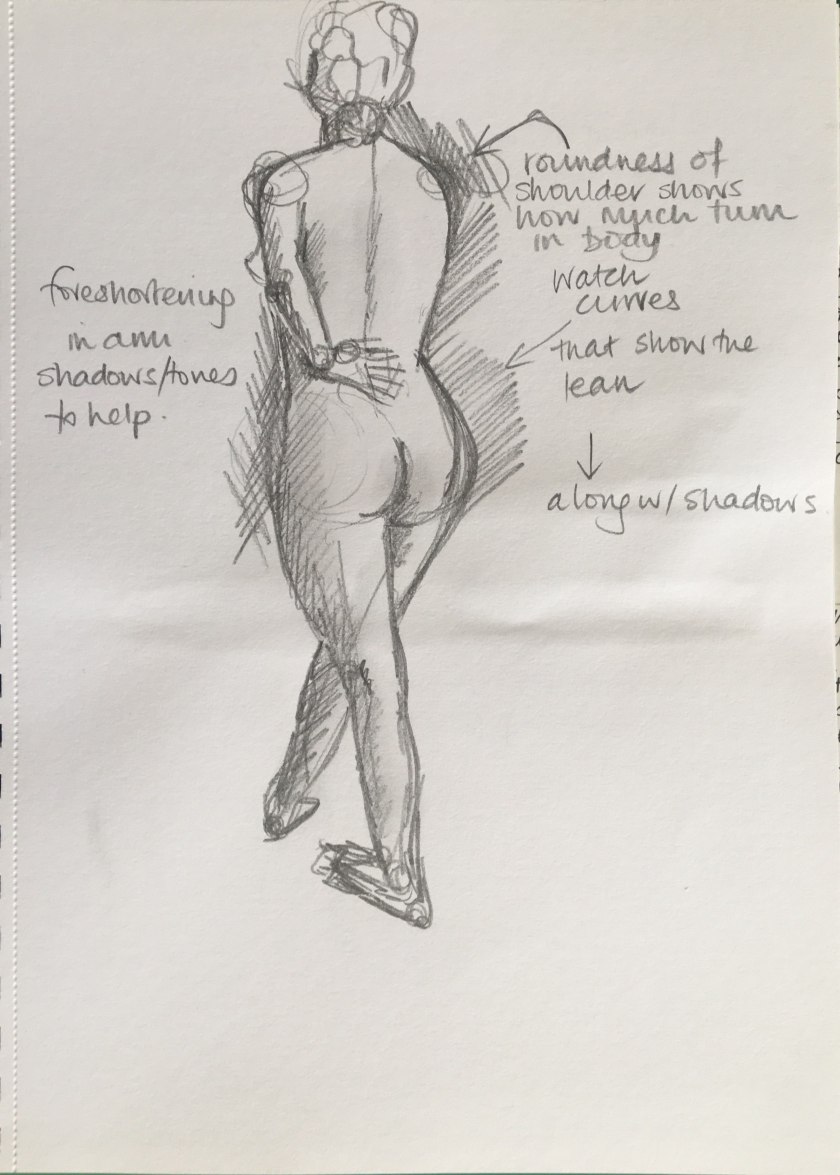 roundness of
shoulder shows
how much turn
in body
watch
curves
that show the
lean
along w/shadows.
foreshortening
in arm
shadows/tones
to help.